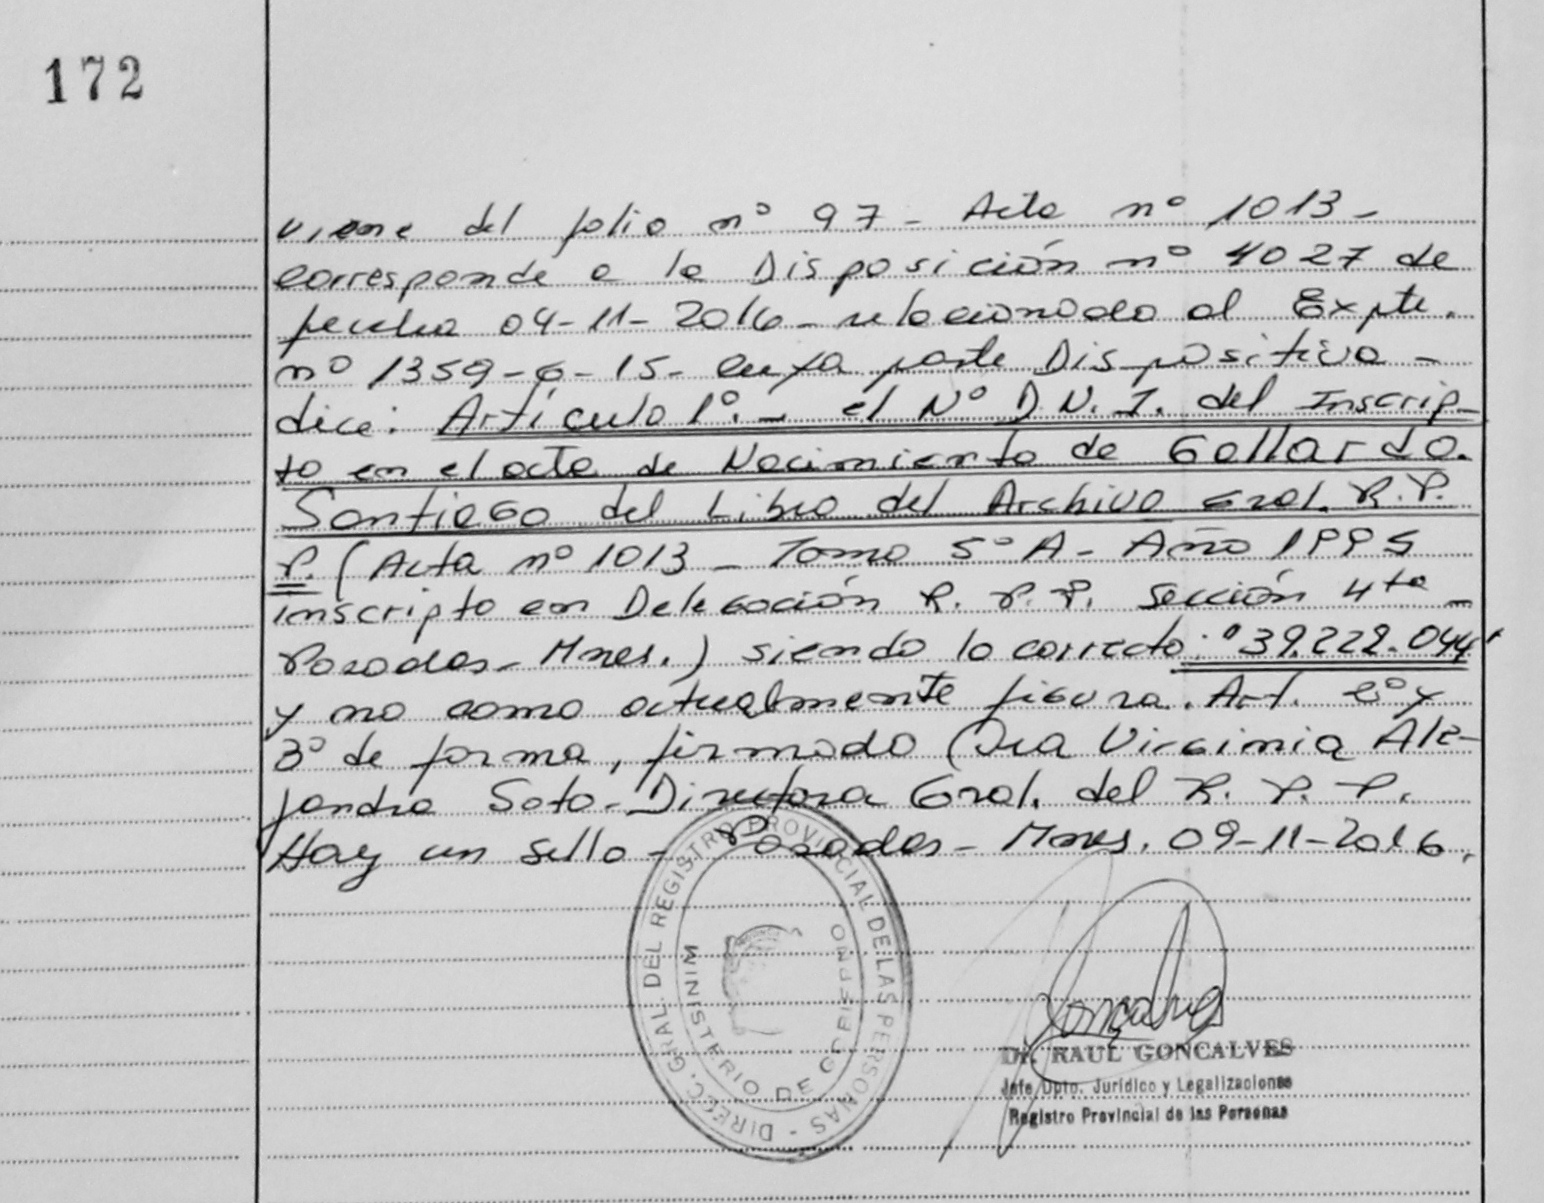 172
viene del folio nº 97 - Acta nº 1013 -
corresponde a la Disposición nº 4027 de
fecha 04-11-2016 - relacionado al Expte.
nº 1359-G-15- cuya parte Dispositiva -
dice: Artículo 1º. - el Nº D.N.I. del Inscrip-
to en el acta de Nacimiento de Gallardo.
Santiago del Libro del Archivo Gral. R.P.
P. (Acta nº 1013 - Tomo 5º A - Año 1995
inscripto en Delegación R. P. P. Sección 4ta -
Posadas - Mnes.) siendo lo correcto: "39.222.044"
y no como actualmente figura. Art. 2º y
3º de forma, firmado (Dra Virginia Ale-
jandra Soto - Directora Gral. del R. P. P.
Hay un sello - Posadas - Mnes. 09-11-2016.
DIRECC. GRAL. DEL REGISTRO PROVINCIAL DE LAS PERSONAS -
MINISTERIO DE GOBIERNO
Goncalves
Dr. RAUL GONCALVES
Jefe Dpto. Jurídico y Legalizaciones
Registro Provincial de las Personas